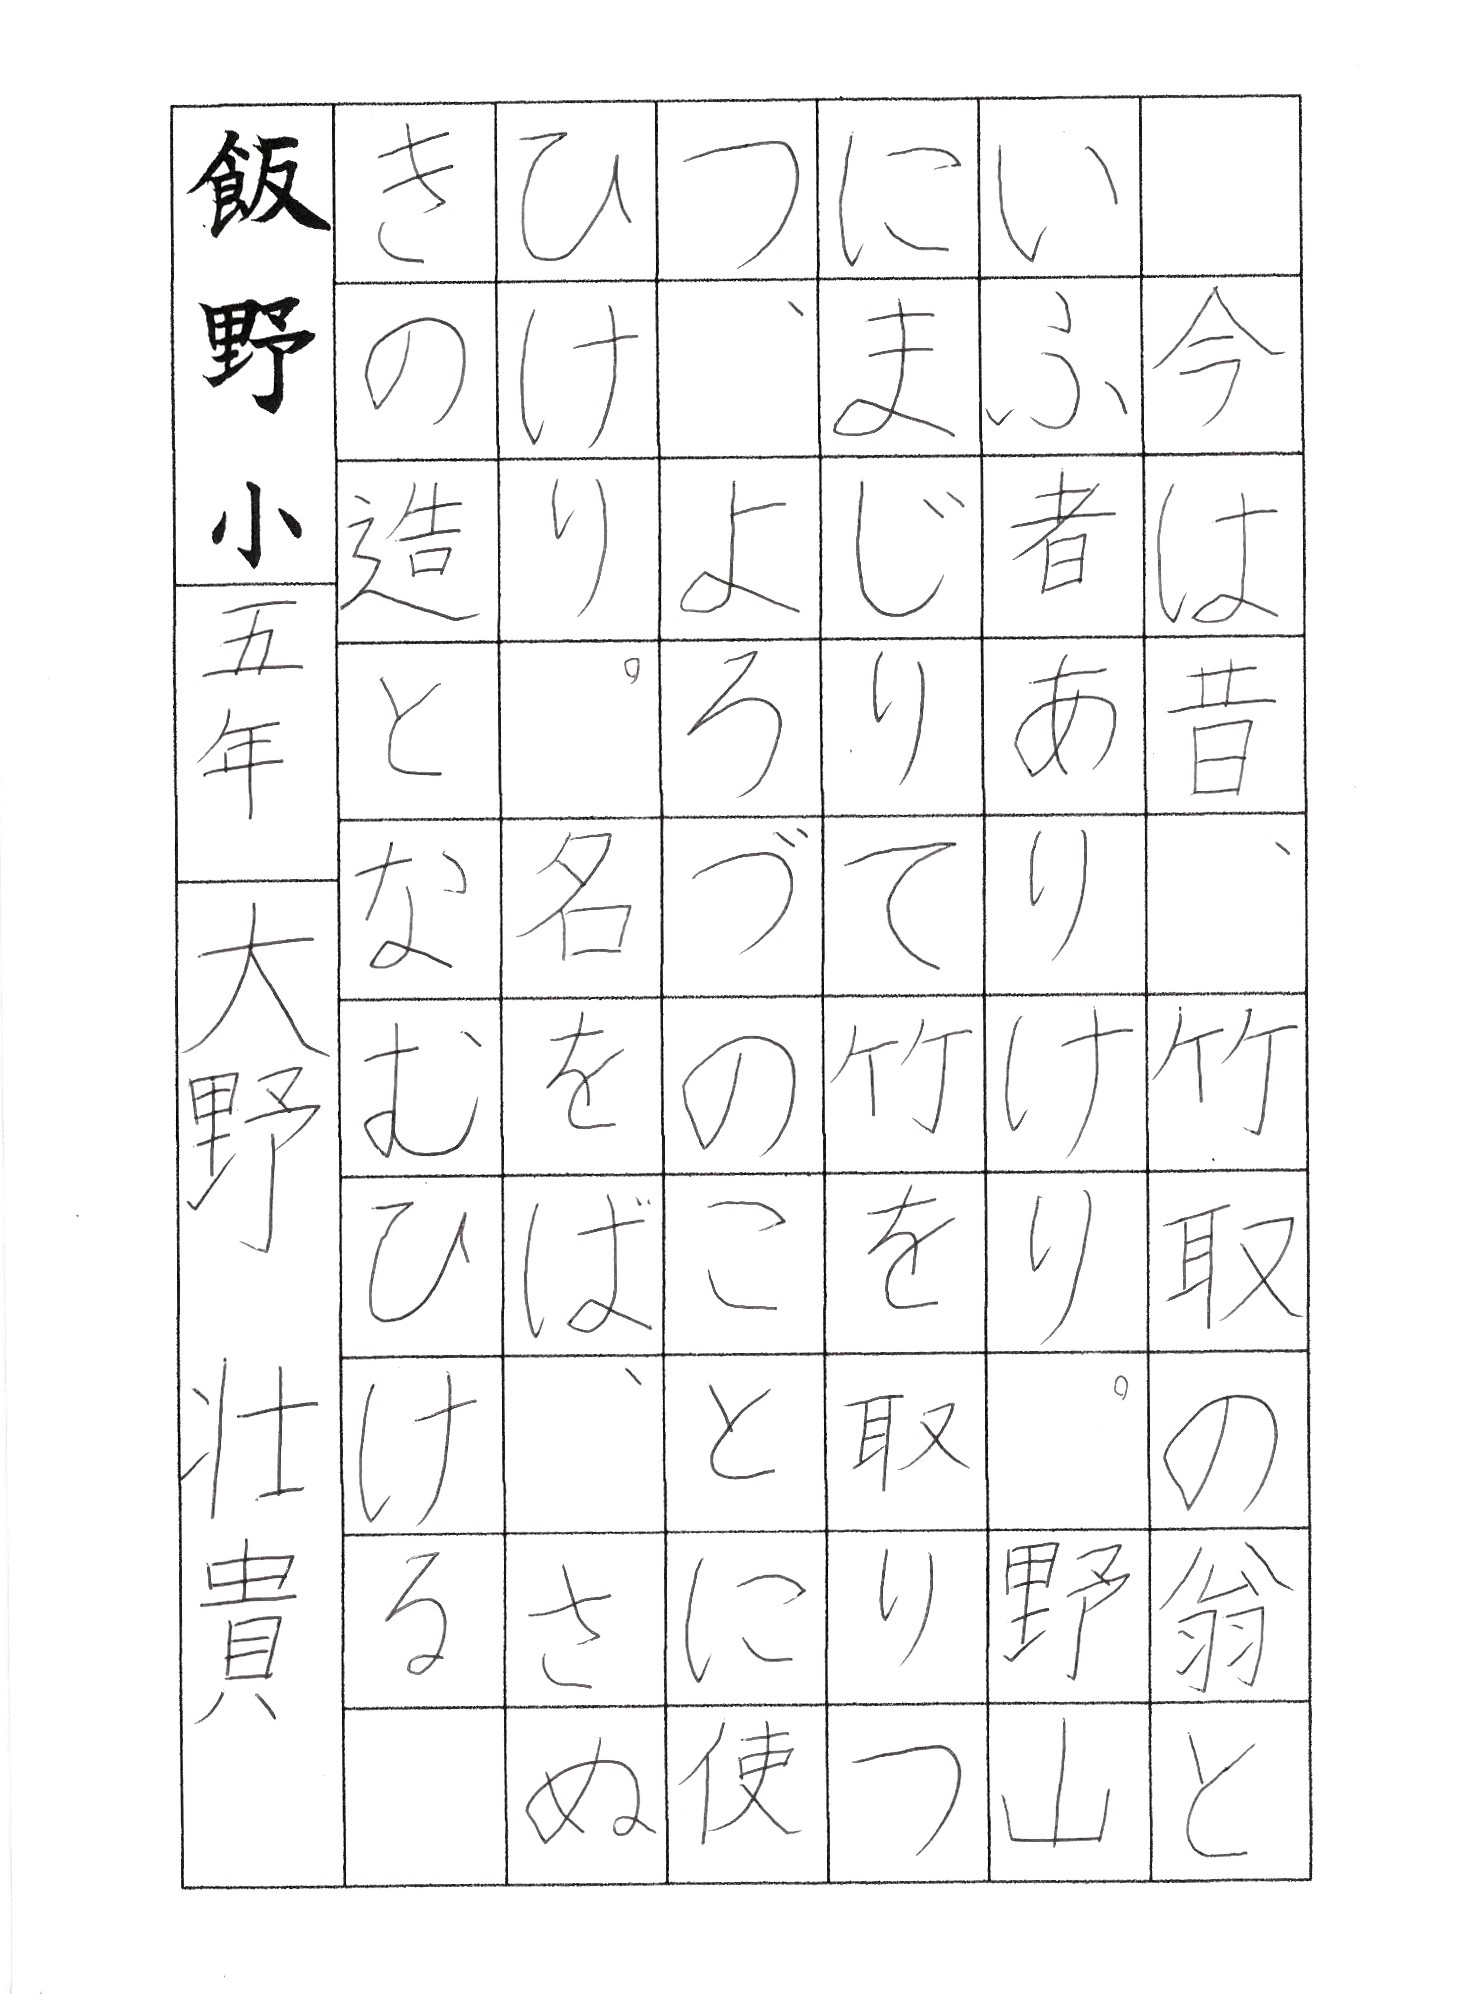 今は昔、竹取の翁と
いふ者ありけり。野山
にまじりて竹を取りつ
つ、よろづのことに使
ひけり。名をば、さぬ
きの造となむひける
飯野小五年 大野 壮貴